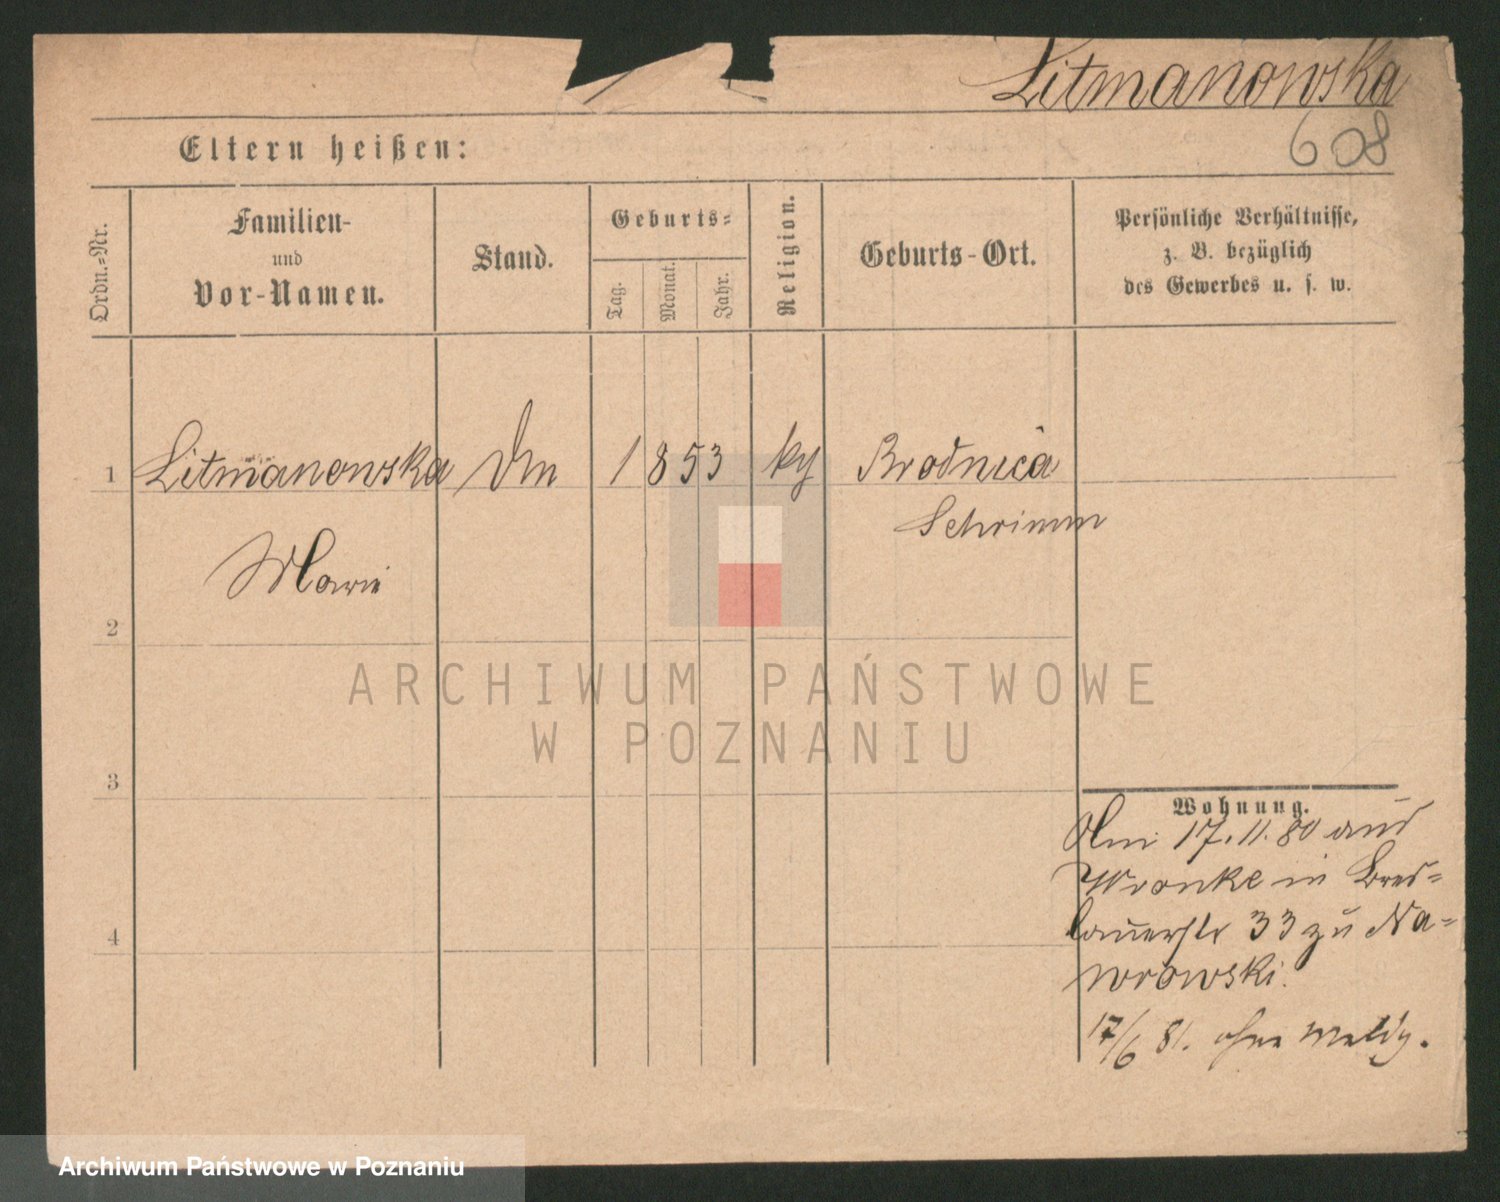 Litmanowska
608
Eltern heißen:
Ordn.-Nr.
Familien-
und
Vor-Namen.
Stand.
Geburts-
Tag.
Monat.
Jahr.
Religion.
Geburts-Ort.
Persönliche Verhältnisse,
z. B. bezüglich
des Gewerbes u. s. w.
1 Litmanowska 1853 Brodnica
Schrimm
Marie
2
ARCHIWUM PAŃSTWOWE
W POZNANIU
3
Wohnung.
17.11.80 aus
Wronke in Bres-
lauerstr 33 zu Na-
wrowski.
4
17/6 81. ohne Meldg.
Archiwum Państwowe w Poznaniu